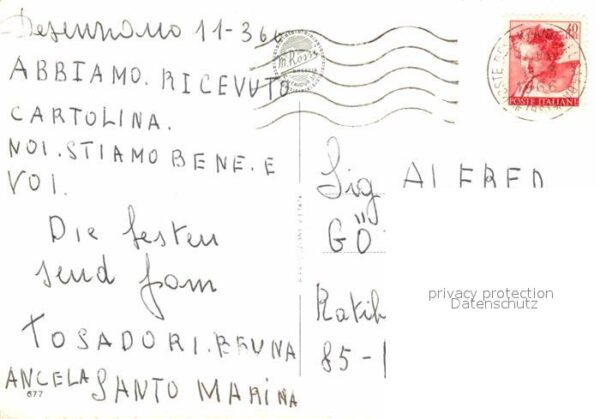 Desenzano 11-3-66
ABBIAMO. RICEVUTO
CARTOLINA.
NOI. STIAMO BENE. E
VOI.
Die besten
send fom
TOSADORI. BRUNA
ANGELA SANTO MARINA
677
M. Rossi
40
POSTE ITALIANE
Sig ALFRED
GÖ
Ratib
85-1
privacy protection
Datenschutz